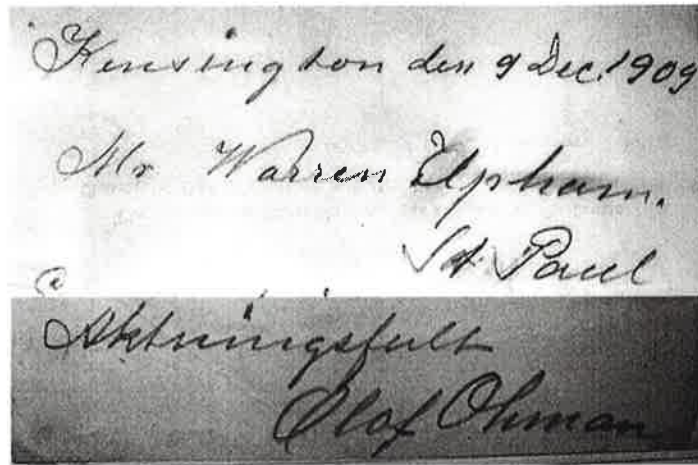 Kensington den 9 Dec. 1909
Mr Warren Elpham.
St. Paul
Aktningsfult
Olof Ohman